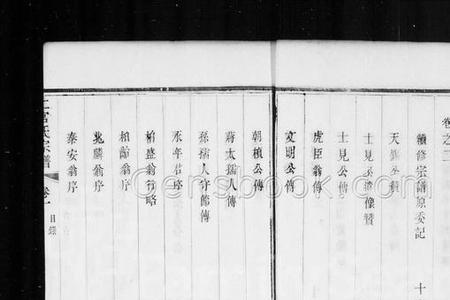 卷之二
續修宗譜原委記
士見公遺像贊
士見公傳
虎臣翁傳
文明公傳
朝楨公傳
蔣太孺人傳
孫孺人守節傳
永年君序
柏盛翁行略
柏齡翁序
兆麟翁序
泰安翁序
上官氏宗譜
卷一
目錄
十
Gensbook.com